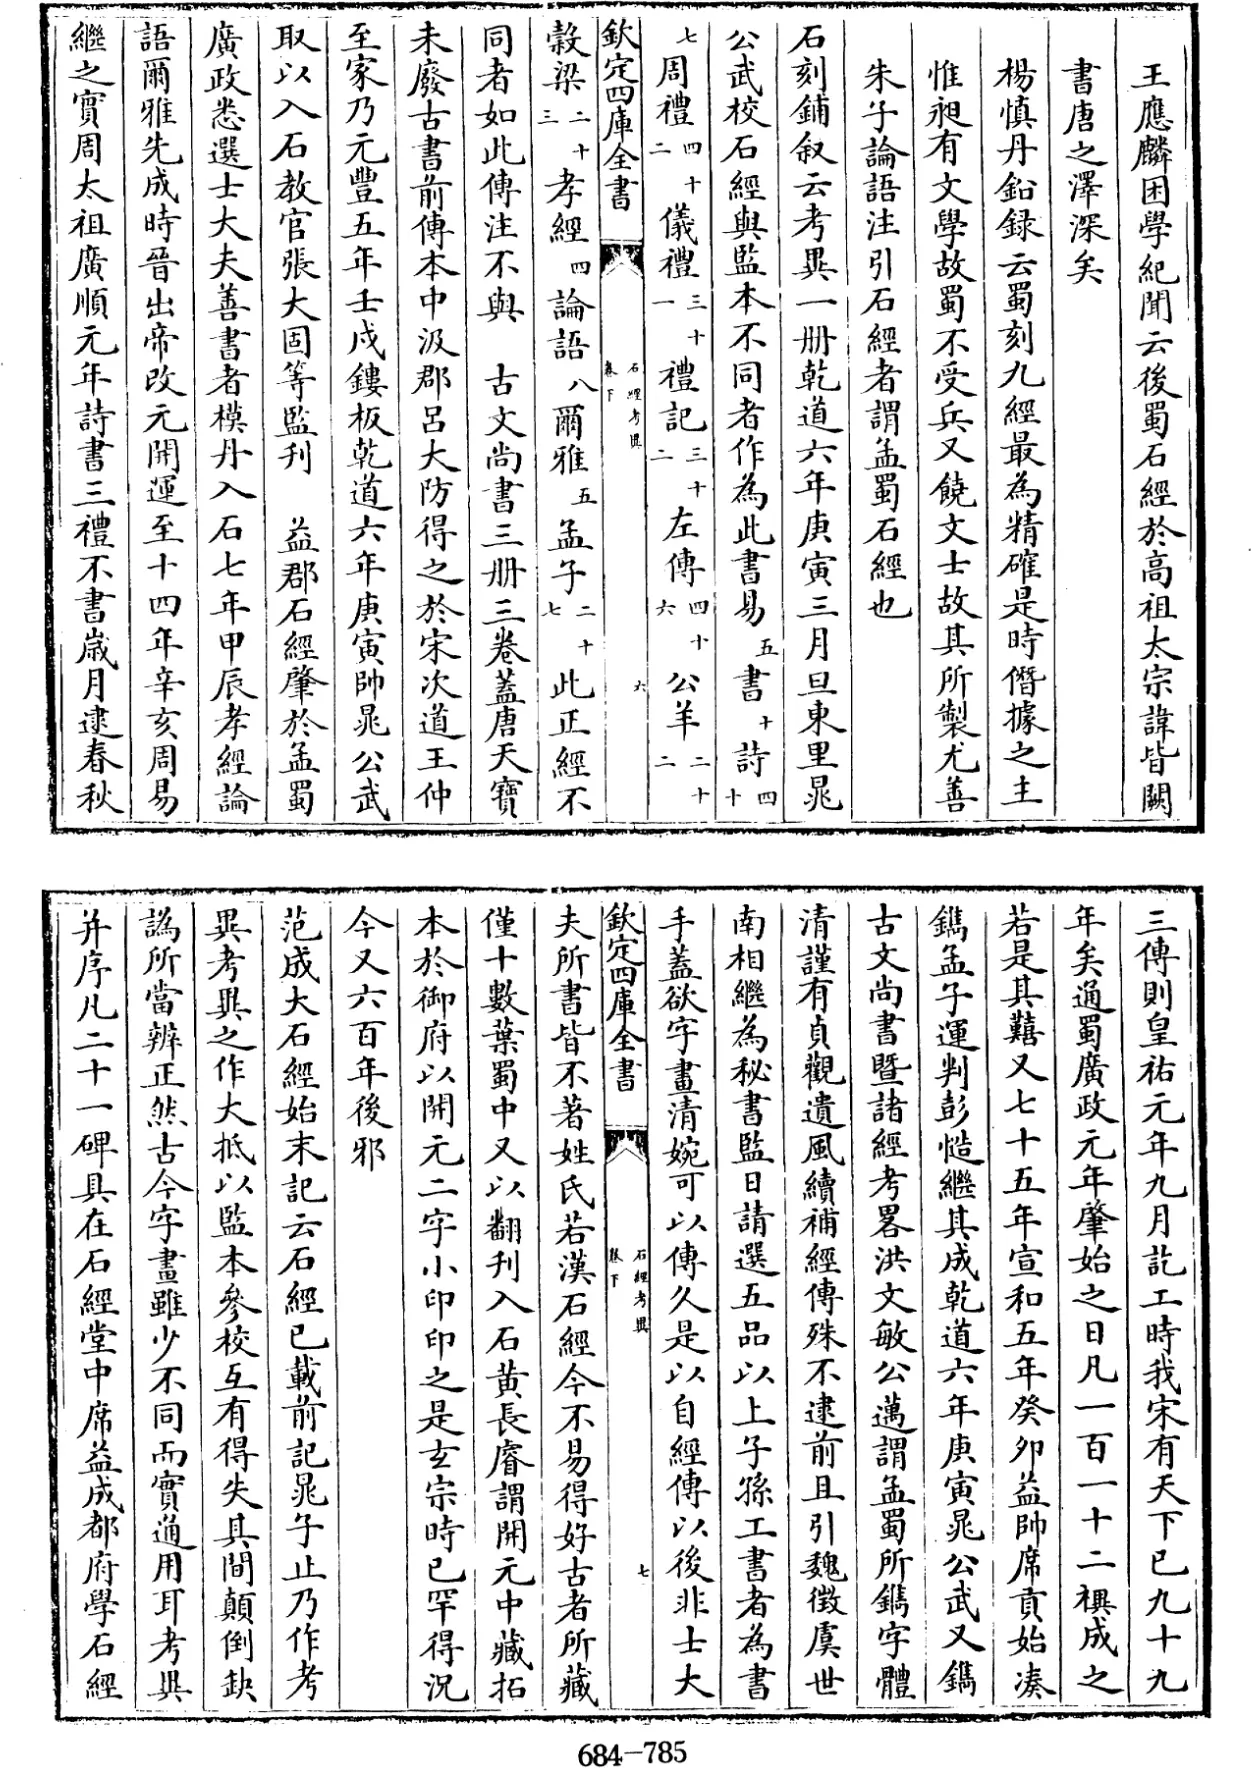 王應麟困學紀聞云後蜀石經於高祖太宗諱皆闕
書唐之澤深矣
楊慎丹鉛録云蜀刻九經最為精確是時僭據之主
惟昶有文學故蜀不受兵又饒文士故其所製尤善
朱子論語注引石經者謂孟蜀石經也
石刻鋪叙云考異一册乾道六年庚寅三月旦東里晁
公武校石經與監本不同者作為此書易五書十詩四十
七周禮四十二儀禮三十一禮記三十二左傳四十六公羊二十二
欽定四庫全書
石經考異
卷下
六
穀梁二十三孝經四論語八爾雅五孟子二十七此正經不
同者如此傳注不與 古文尚書三册三卷蓋唐天寶
未廢古書前傳本中汲郡吕大防得之於宋次道王仲
至家乃元豐五年壬戌鏤板乾道六年庚寅帥晁公武
取以入石教官張大固等監刊 益郡石經肇於孟蜀
廣政悉選士大夫善書者模丹入石七年甲辰孝經論
語爾雅先成時晉出帝改元開運至十四年辛亥周易
繼之實周太祖廣順元年詩書三禮不書嵗月逮春秋
三傳則皇祐元年九月訖工時我宋有天下已九十九
年矣通蜀廣政元年肇始之日凡一百一十二禩成之
若是其囏又七十五年宣和五年癸卯益帥席貢始湊
鐫孟子運判彭慥繼其成乾道六年庚寅晁公武又鐫
古文尚書暨諸經考畧洪文敏公邁謂孟蜀所鐫字體
清謹有貞觀遺風續補經傳殊不逮前且引魏徵虞世
南相繼為秘書監日請選五品以上子孫工書者為書
手蓋欲字畫清婉可以傳久是以自經傳以後非士大
欽定四庫全書
石經考異
卷下
七
夫所書皆不著姓氏若漢石經今不易得好古者所藏
僅十數葉蜀中又以翻刊入石黄長睿謂開元中藏拓
本於御府以開元二字小印印之是玄宗時已罕得况
今又六百年後邪
范成大石經始末記云石經已載前記晁子止乃作考
異考異之作大抵以監本參校互有得失其間顛倒缺
譌所當辨正然古今字畫雖少不同而實通用耳考異
并序凡二十一碑具在石經堂中席益成都府學石經
684-785